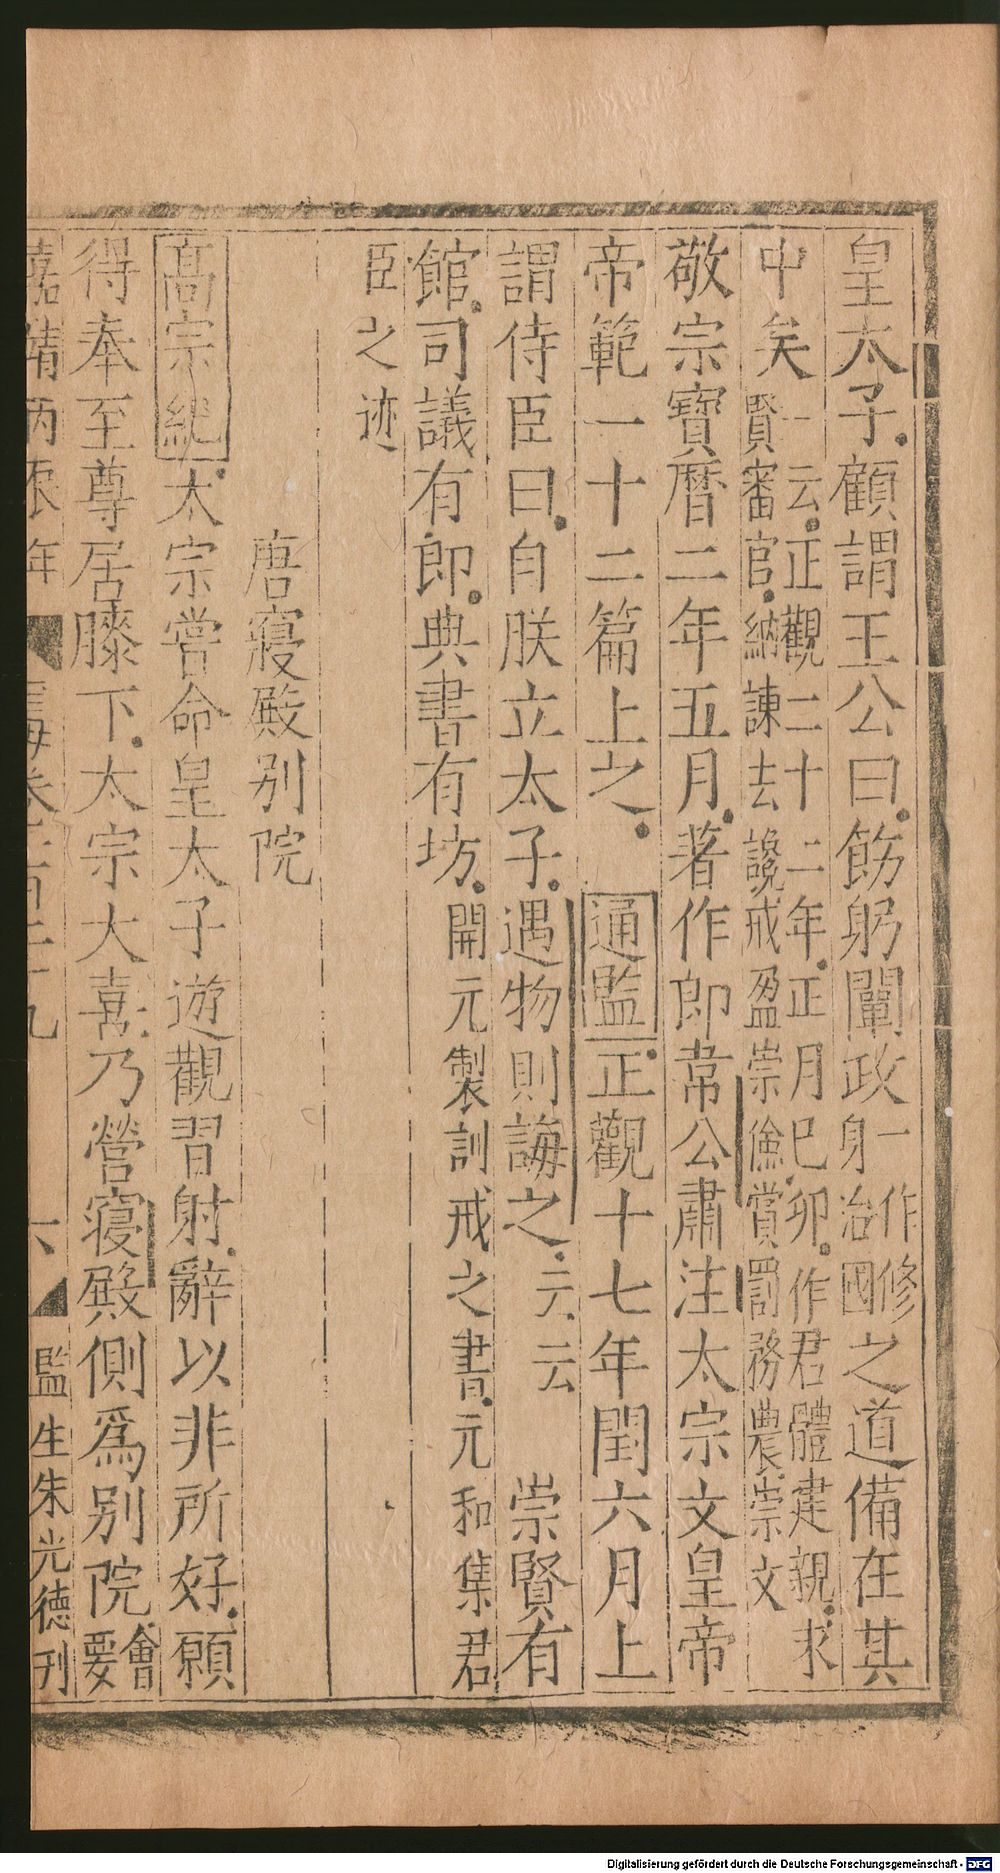 皇太子顧謂王公曰飭躬闡政身一作修治國之道備在其
中矣一云正觀二十二年正月己卯作君體建親求賢審官納諫去讒戒盈崇儉賞罰務農崇文
敬宗寶曆二年五月著作郎韋公肅注太宗文皇帝
帝範一十二篇上之 通監正觀十七年閏六月上
謂侍臣曰自朕立太子遇物則誨之云云 崇賢有
館司議有郎典書有坊開元製訓戒之書元和集君
臣之迹
唐寢殿別院
高宗紀太宗嘗命皇太子遊觀習射辭以非所好願
得奉至尊居膝下太宗大喜乃營寢殿側爲別院會要
嘉靖丙辰年 玉海卷一百二十九 六 監生朱光德刊
Digitalisierung gefördert durch die Deutsche Forschungsgemeinschaft - DFG